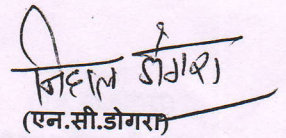 निहाल डोगरा
(एन.सी.डोगरा)